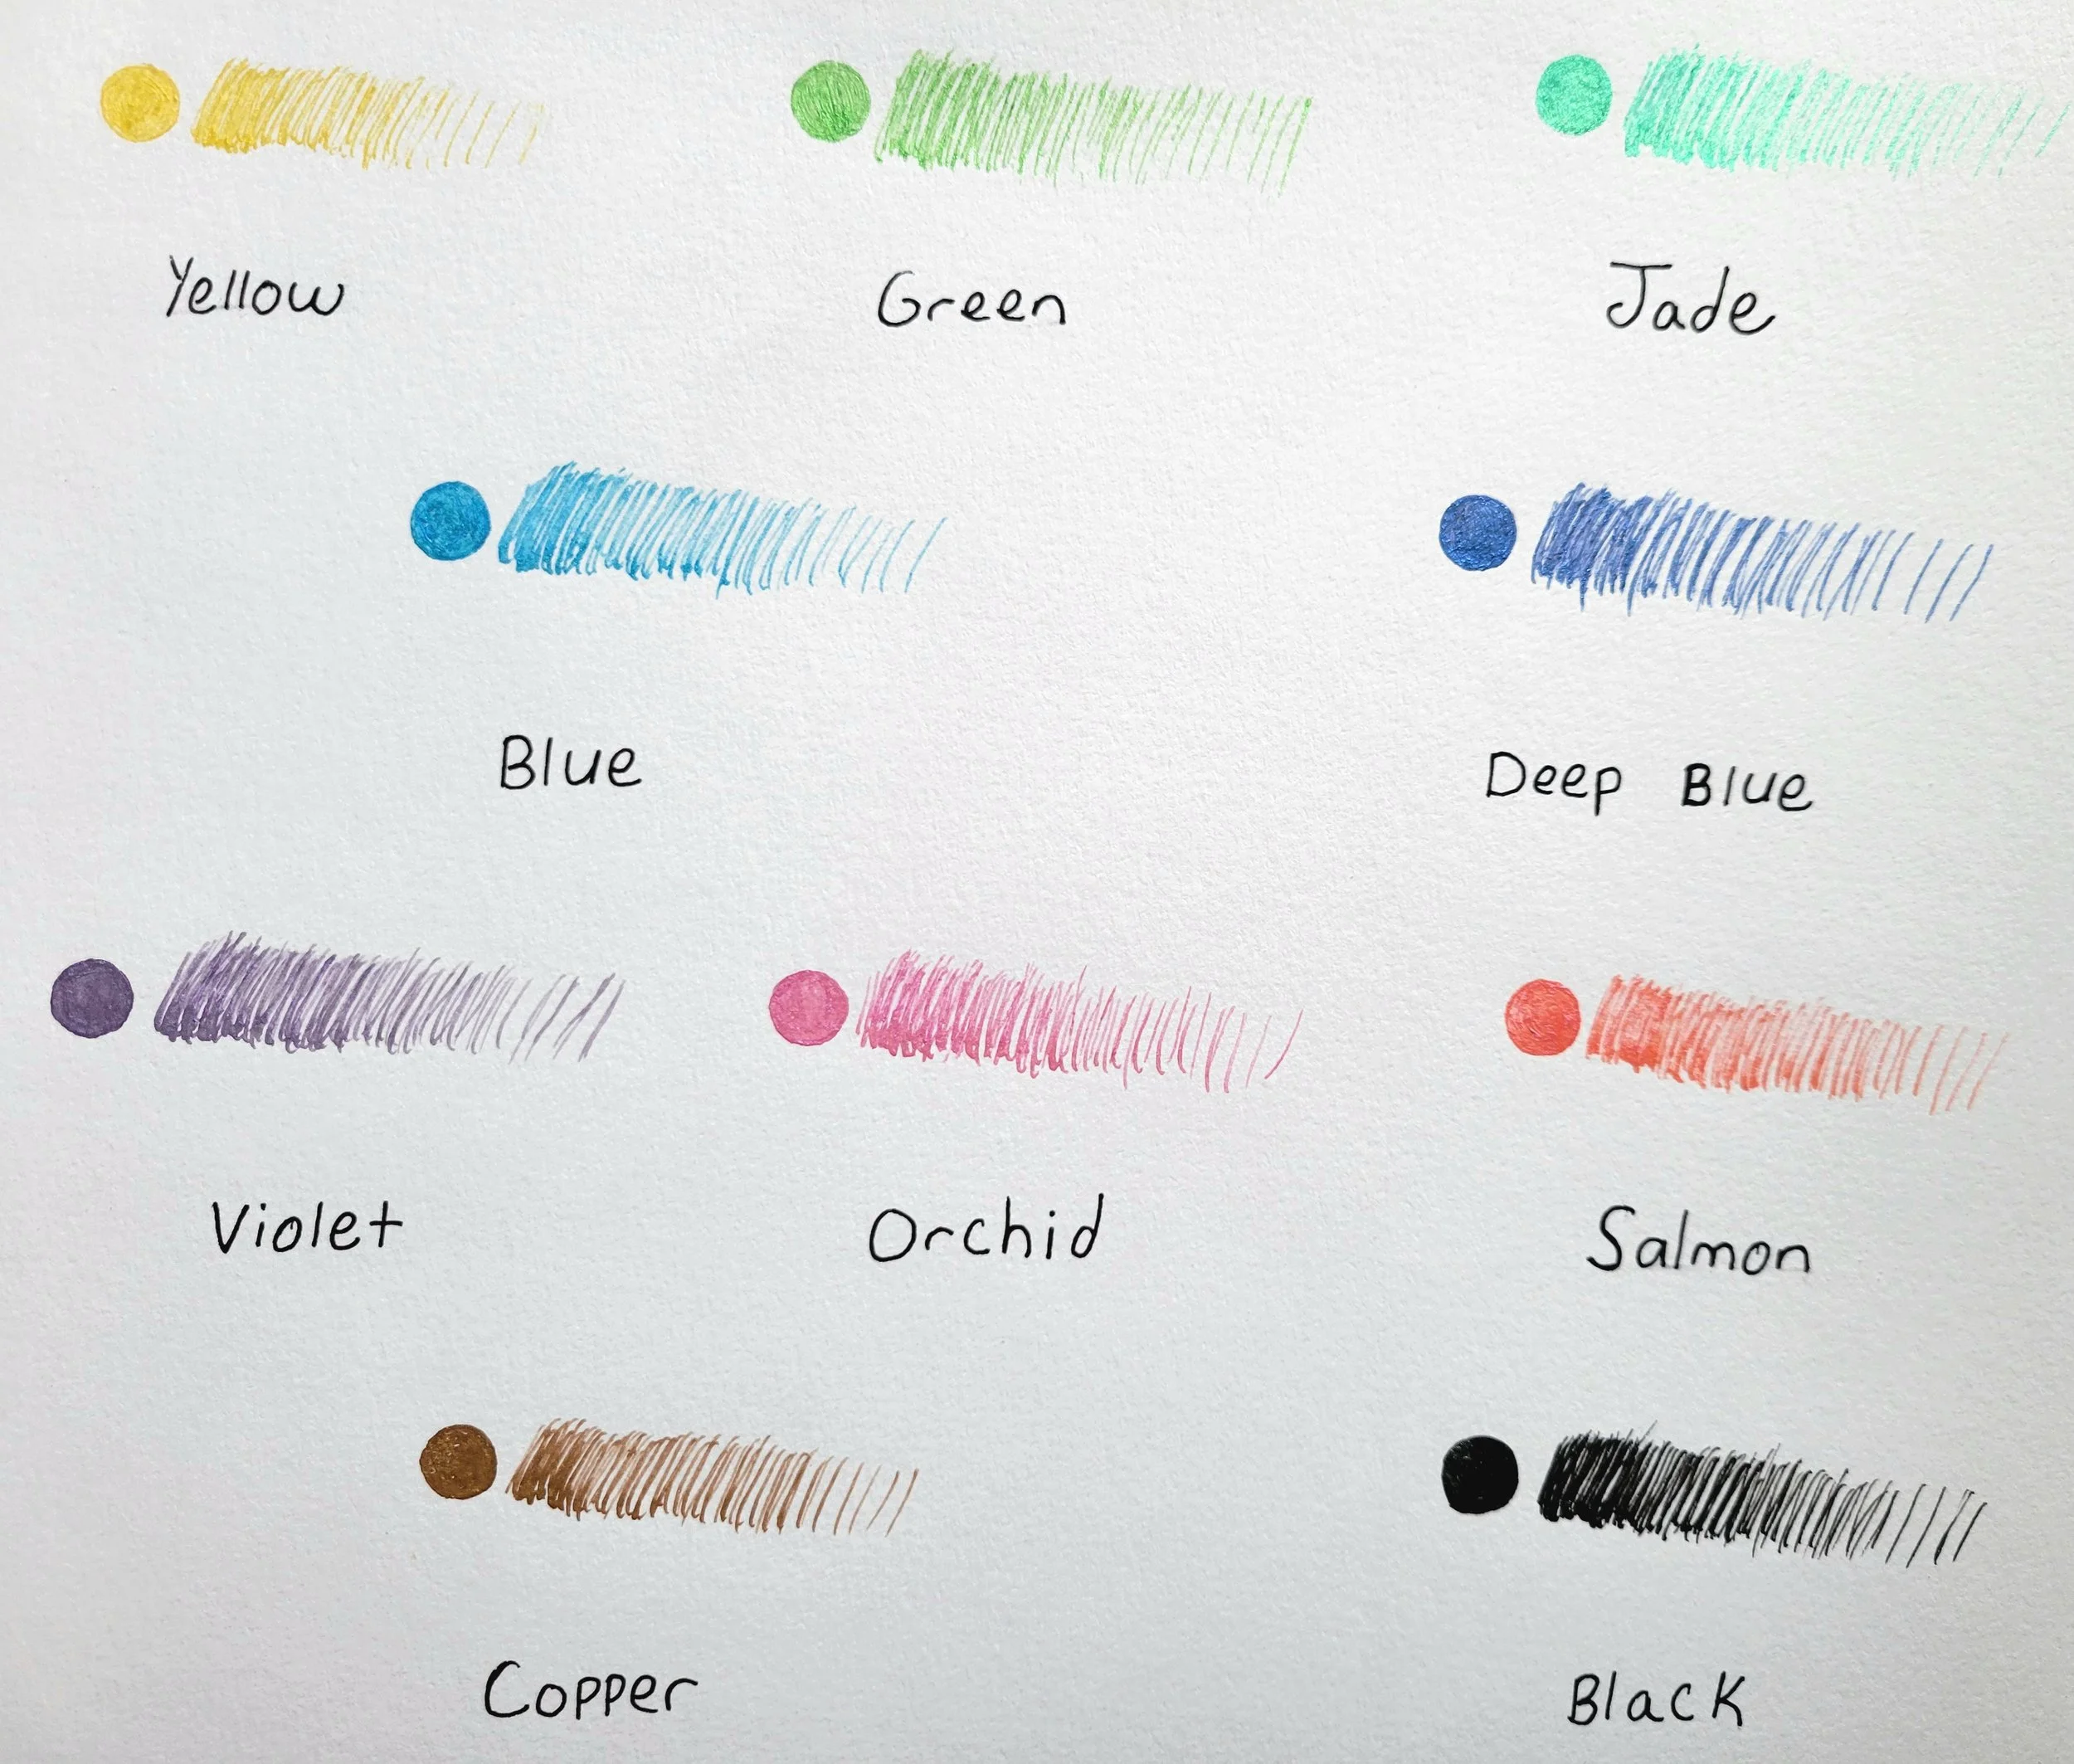 Yellow
Green
Jade
Blue
Deep Blue
Violet
Orchid
Salmon
Copper
Black